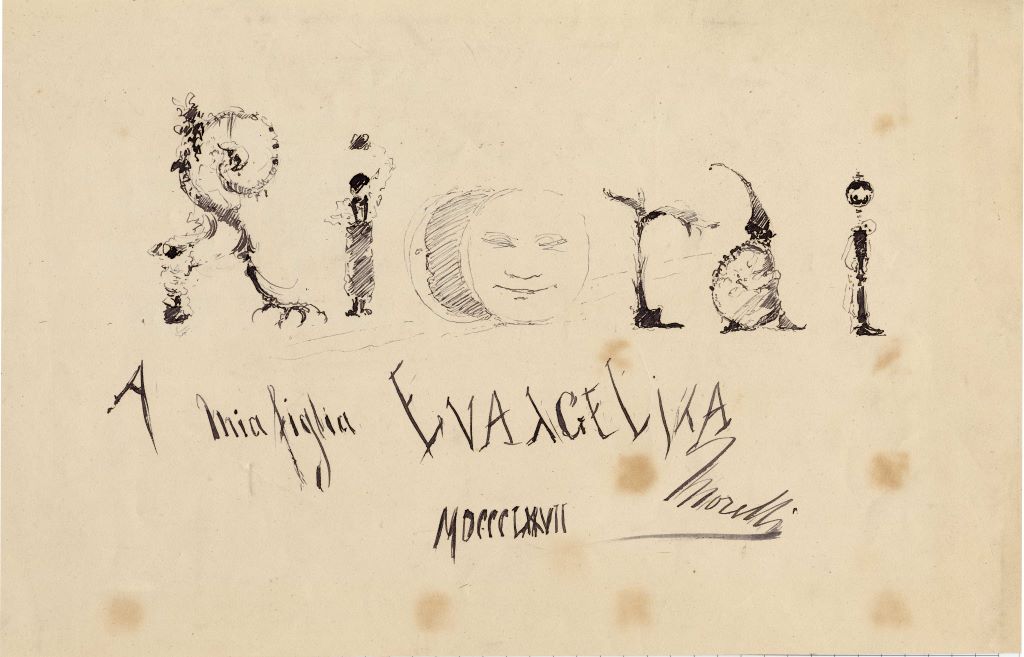 Ricordi
A mia figlia EVANGELINA
Morelli
MDCCCLXXVII